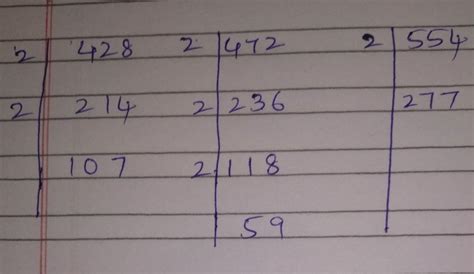 2 428 2 472 2 554
2 214 2 236 277
107 2 118
59